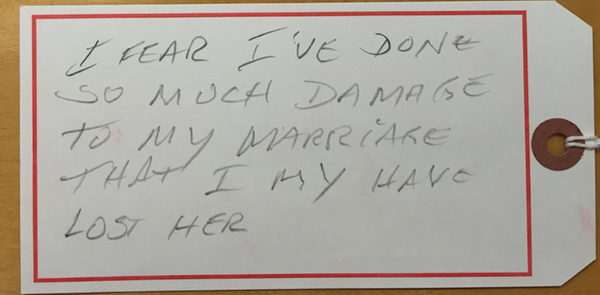 I FEAR I'VE DONE
SO MUCH DAMAGE
TO MY MARRIAGE
THAT I MY HAVE
LOST HER